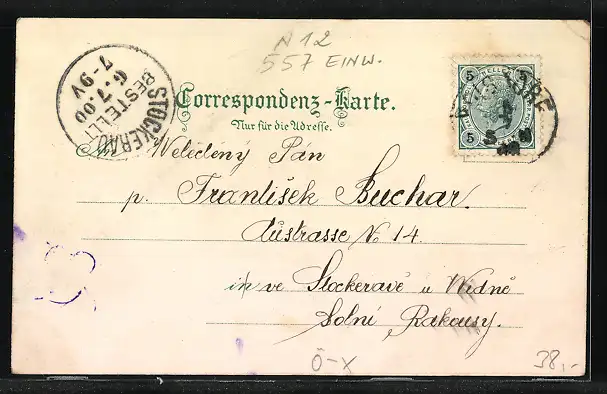 N 12
557 EINW.
STOCKERAU
BESTELLT
6.7.00
7-9V
Correspondenz-Karte.
Nur für die Adresse.
5 5
HELLER
5 5
An Velectěný Pán
p. František Buchar.
Austrasse No 14.
in ve Stockeravě u Vídně
Dolní Rakousy.
Ö-X
38,-